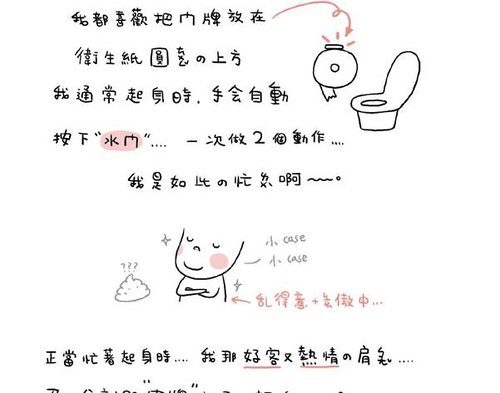 我都喜歡把门牌放在
衛生紙圓の上方
我通常起身時,手會自動
按下"水门".... 一次做2個動作....
我是如此の忙啊~~。
小case
小case
???
←乱得意+傲中...
正當忙著起身時.... 我那好客又熱情の肩....